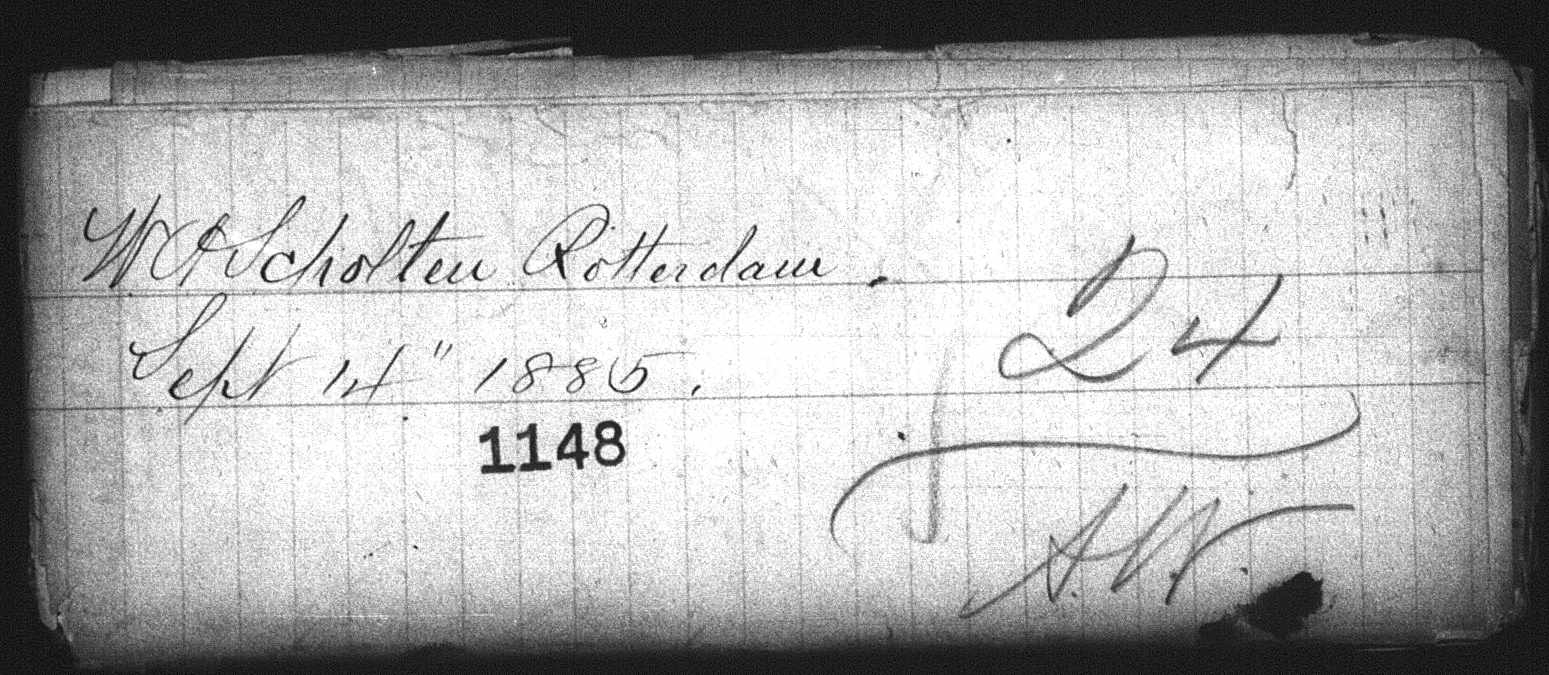 W A Scholten Rotterdam.
Sept 14" 1885.
24
1148
A.W